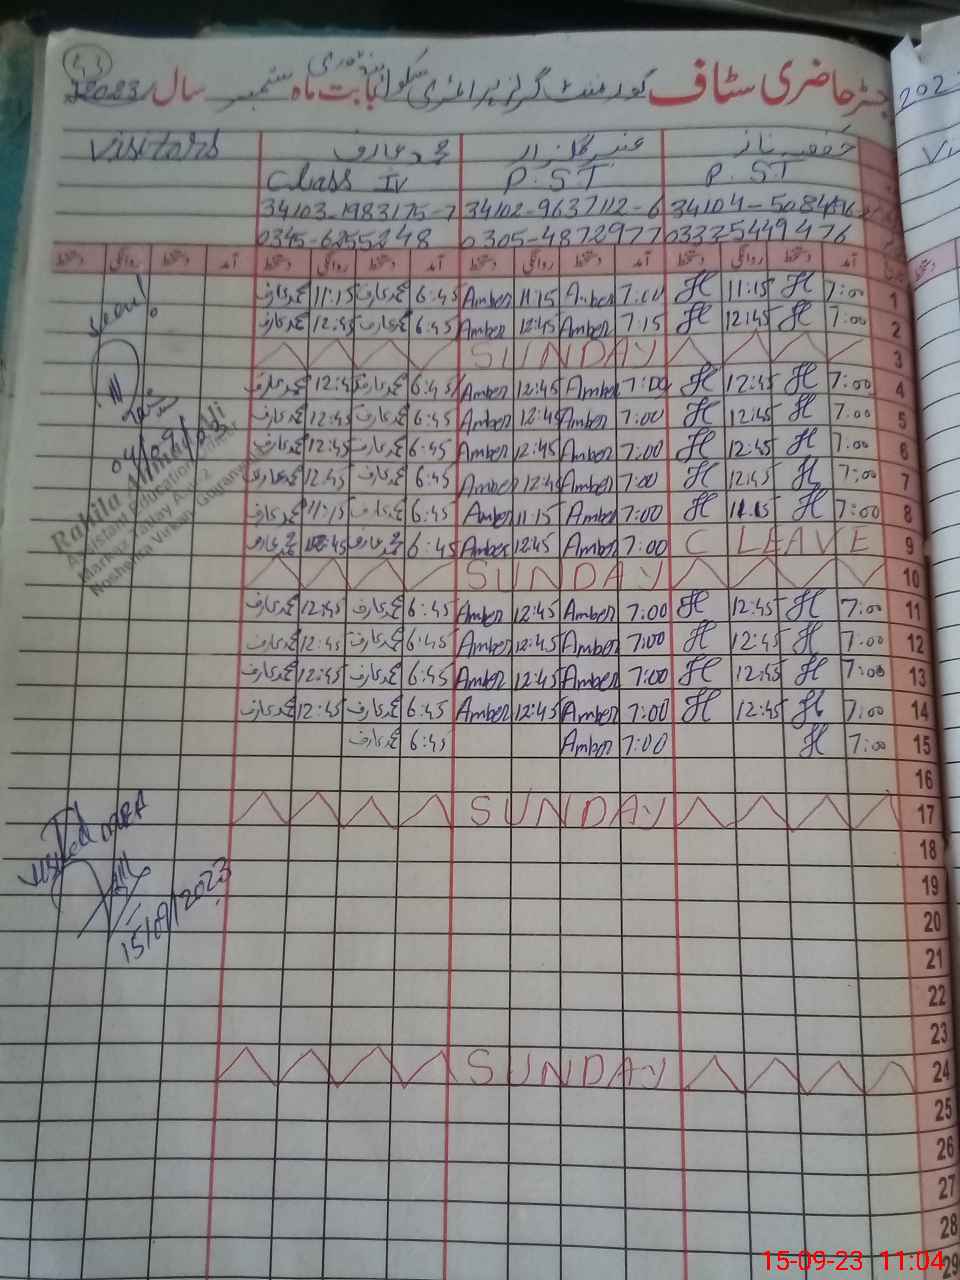 رجسٹر حاضری سٹاف گورنمنٹ گرلز پرائمری سکول بابت ماہ ستمبر سال 2023
Visitors محمد عارف عنبر گلزار ناز
Class IV P.ST P.ST
34103-1983175-7 34102-9637112-6
0345-6255248 0305-4872977 03335449476
دستخط روانگی دستخط آمد دستخط روانگی دستخط آمد دستخط روانگی دستخط آمد دستخط روانگی دستخط آمد
محمد عارف 11:15 محمد عارف 6:45 Amber 11:15 Amber 7:00 H 11:15 H 7:00 1
محمد عارف 12:45 محمد عارف 6:45 Amber 12:45 Amber 7:15 H 12:45 H 7:00 2
SUNDAY 3
محمد عارف 12:45 محمد عارف 6:45 Amber 12:45 Amber 7:00 H 12:45 H 7:00 4
محمد عارف 12:45 محمد عارف 6:45 Amber 12:45 Amber 7:00 H 12:45 H 7:00 5
محمد عارف 12:45 محمد عارف 6:45 Amber 12:45 Amber 7:00 H 12:45 H 7:00 6
محمد عارف 12:45 محمد عارف 6:45 Amber 12:45 Amber 7:00 H 12:45 H 7:00 7
محمد عارف 11:15 محمد عارف 6:45 Amber 11:15 Amber 7:00 H 11:15 H 7:00 8
محمد عارف 12:45 محمد عارف 6:45 Amber 12:45 Amber 7:00 C LEAVE 9
SUNDAY 10
محمد عارف 12:45 محمد عارف 6:45 Amber 12:45 Amber 7:00 H 12:45 H 7:00 11
محمد عارف 12:45 محمد عارف 6:45 Amber 12:45 Amber 7:00 H 12:45 H 7:00 12
محمد عارف 12:45 محمد عارف 6:45 Amber 12:45 Amber 7:00 H 12:45 H 7:00 13
محمد عارف 12:45 محمد عارف 6:45 Amber 12:45 Amber 7:00 H 12:45 H 7:00 14
محمد عارف 6:45 Amber 7:00 H 7:00 15
16
SUNDAY 17
18
19
20
21
22
23
SUNDAY 24
25
26
27
28
29
Seen
Rahila
Assistant Education Officer
Markaz
Noshehra Virkan Gujranwala
Visited
15/09/2023
15-09-23 11:04